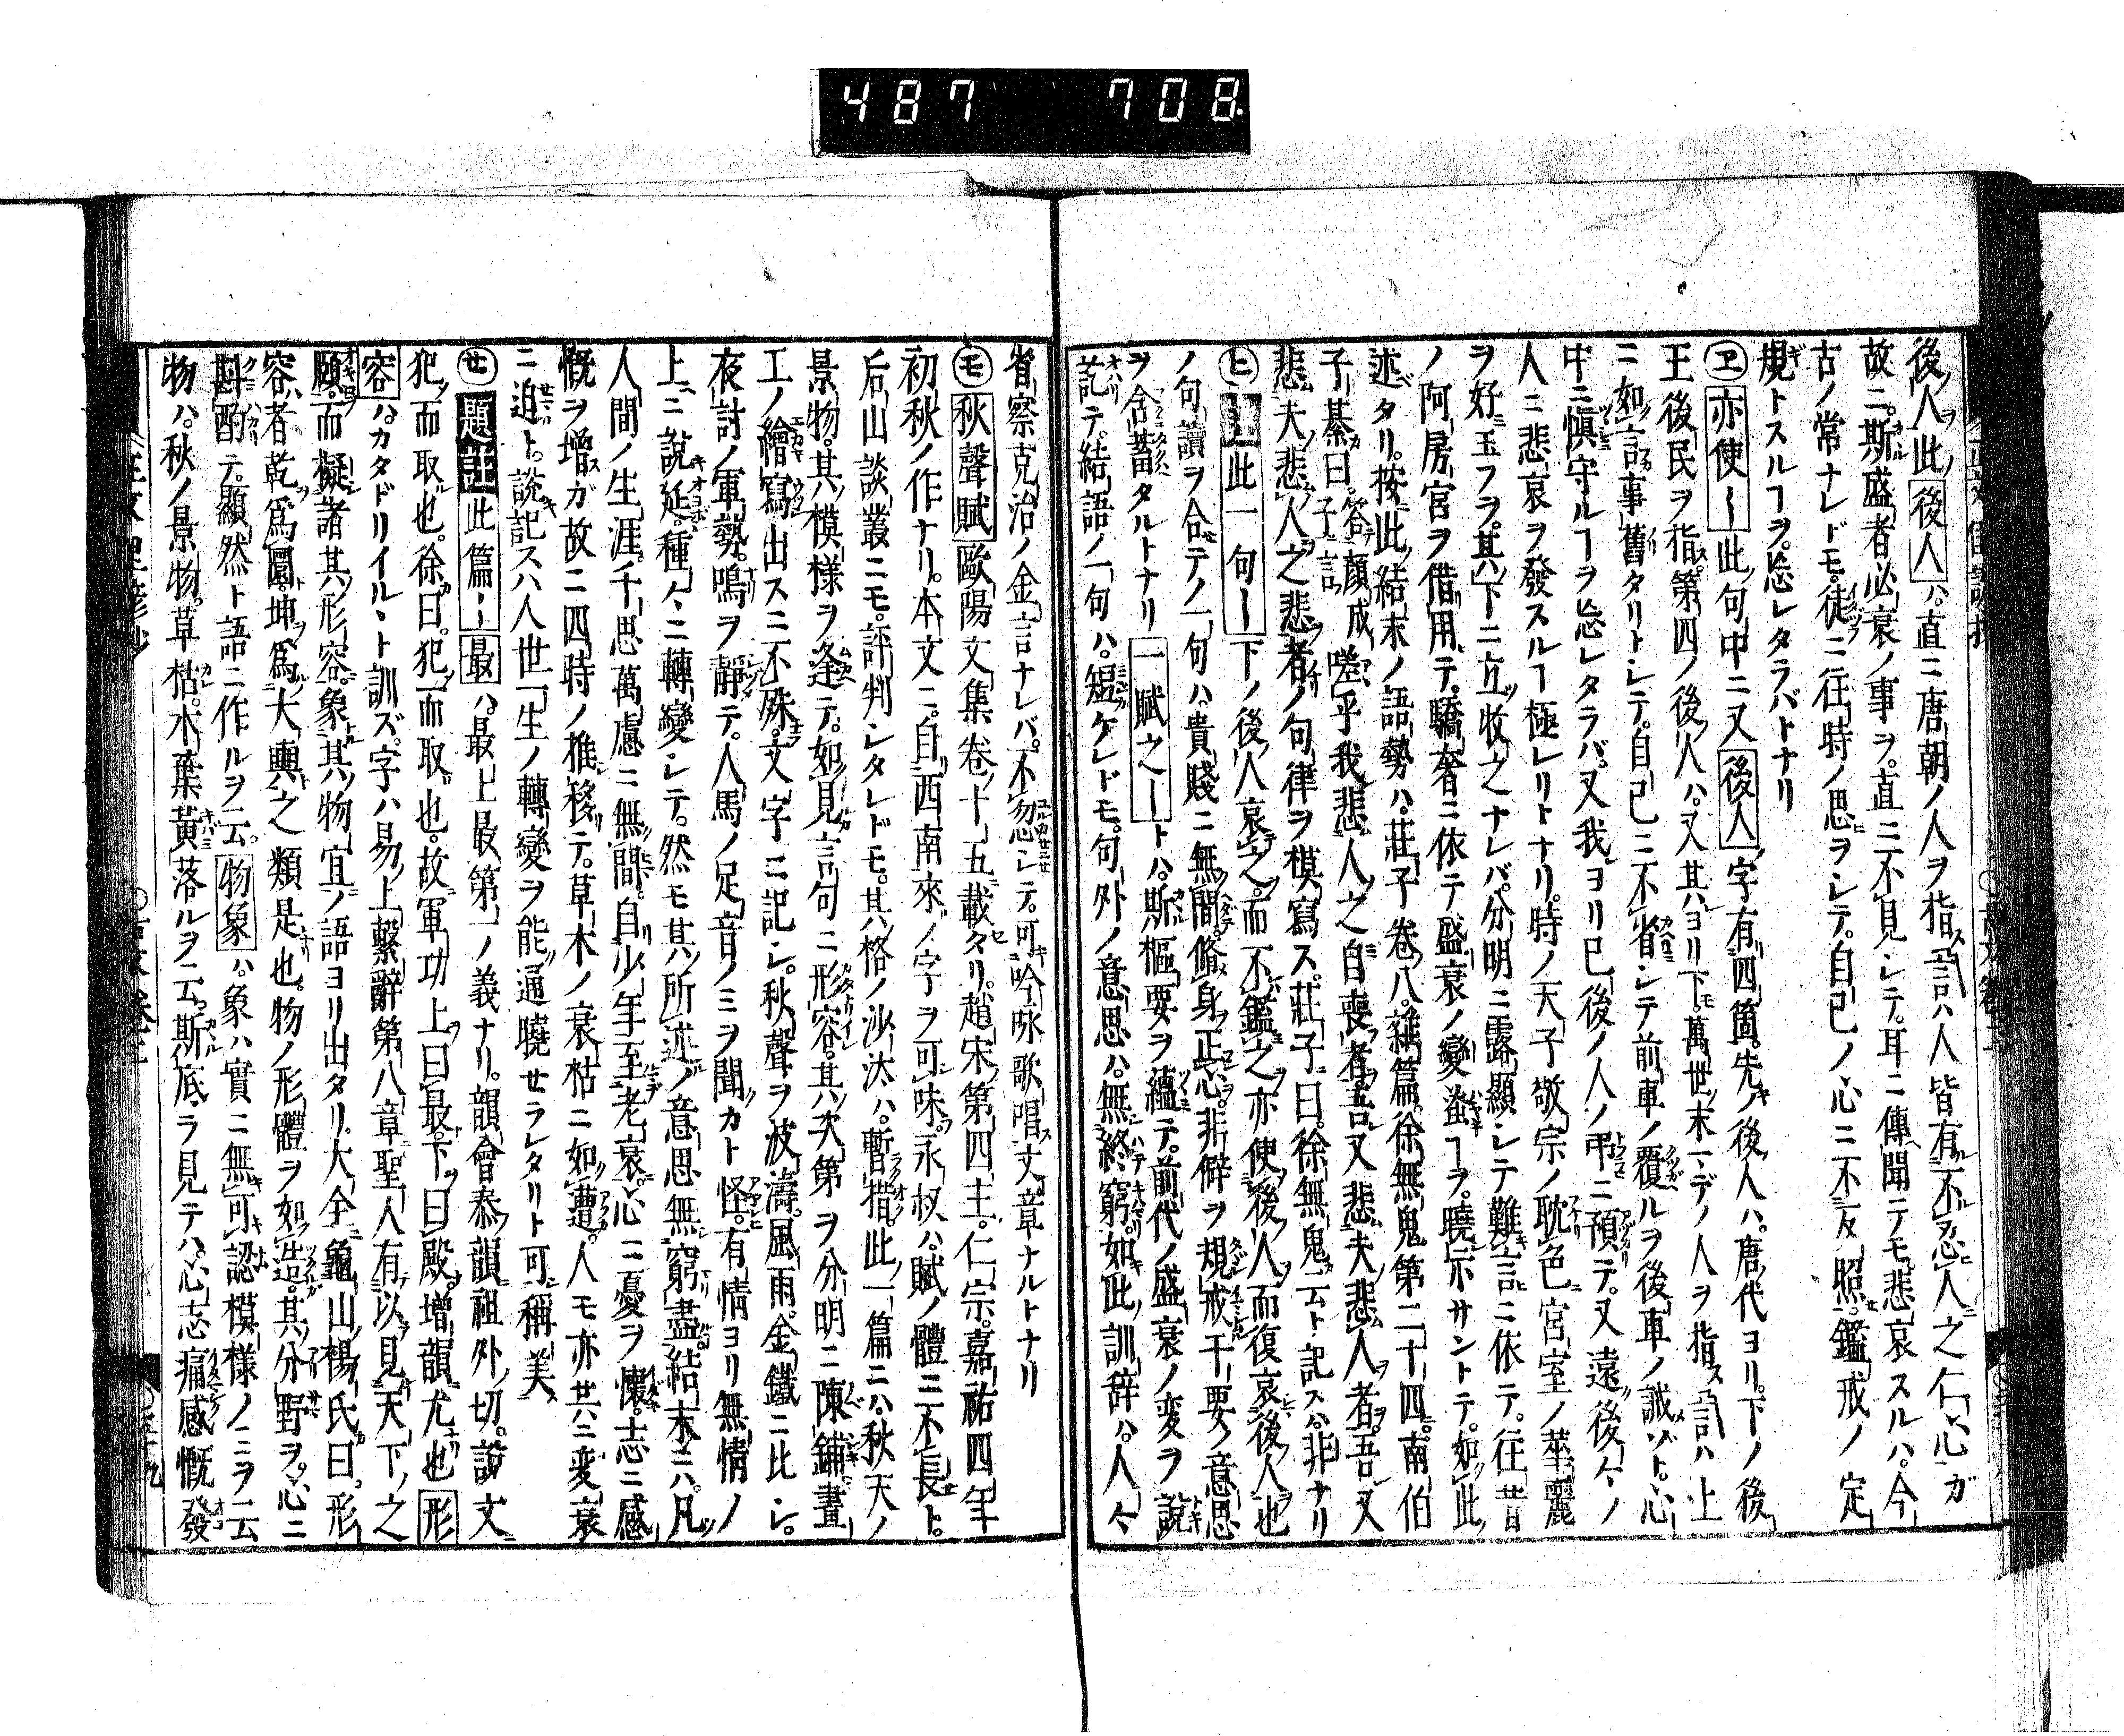 487 708
後人此後人ハ。直ニ唐朝ノ人ヲ指ス。言ハ人皆有不忍人之仁心ガ
故ニ。斯盛者必衰ノ事ヲ。直ニ不見シテ。耳ニ傳聞テモ。悲哀スルハ。今
古ノ常ナレドモ。徒ニ往時ノ思ヲシテ。自己ノ心ニ不反照。鑑戒ノ定
規トスルヿヲ。忘レタラバトナリ
ヱ亦使ー此句中ニ又後人ノ字有四箇。先ノ後人ハ。唐代ヨリ。下ノ後
王後民ヲ指。第四ノ後人ハ。又其ヨリ下モ。萬世末マデノ人ヲ指ス。言ハ上
ニ如言事舊タリトシテ。自己ニ不省シテ前車ノ覆ルヲ後車ノ誡メト。心
中ニ愼守ルヿヲ忘レタラバ。又我ヨリ已後ノ人ノ弔ニ預テ。又遠後々ノ
人ニ悲哀ヲ發スルヿ極レリトナリ。時ノ天子敬宗ノ耽色宮室ノ華麗
ヲ好玉フヲ。其下ニ立ツ牧之ナレバ。分明ニ露顯シテ難言ニ依テ。往昔
ノ阿房宮ヲ借用テ。驕奢ニ依テ盛衰ノ變澁ヿヲ。曉示サントテ。如此
述タリ。按此結末ノ語勢ハ。莊子卷八。雜篇。徐無鬼第二十四。南伯
子綦曰。答顔成子言嗟乎我悲人之自喪者吾又悲夫悲人者。吾又
悲夫悲人之悲者ノ句律ヲ模寫ス。莊子曰。徐無鬼云ト記スハ非ナリ
ヒ註此一句ー下ノ後人哀之。而不鑑之亦使後人而復哀後人也
ノ句讀ヲ合テノ一句ハ。貴賤ニ無間。脩身正忘非僻ヲ規戒干要ノ意思
ヲ含蓄タルトナリ一賦之ートハ。斯樞要ヲ蘊テ。前代ノ盛衰ノ変ヲ説
訖テ。結語ノ一句ハ。短ケレドモ。句外ノ意思ハ。無終窮。如此訓辞ハ。人々
省察克治ノ金言ナレバ。不忽シテ。可吟咏歌唱文章ナルトナリ
モ秋聲賦歐陽文集卷ノ十五載タリ。趙宋第四主。仁宗。嘉祐四年
初秋ノ作ナリ。本文ニ。自西南來ノ字ヲ可味。永叔ハ。賦ノ體ニ不長ト。
后山談叢ニモ。評判シタレドモ。其格ノ沙汰ハ。暫措。此一篇ニハ。秋天ノ
景物。其模様ヲ逢テ。如見言句ニ形容。其次第ヲ分明ニ陳鋪畫
工ノ繪寫出スニ不殊。文字ニ記シ。秋聲ヲ波濤。風雨。金鐵ニ比シ。
夜討ノ軍勢。鳴ヲ靜テ。人馬ノ足音ノミヲ聞カト怪。有情ヨリ無情ノ
上ニ説延。種々ニ轉變シテ。然モ其所述ノ意思無窮盡。結末ニハ。凡
人間ノ生涯。千思萬慮ニ無間。自少年至老衰。心ニ憂ヲ懷。志ニ感
慨ヲ增スガ故ニ四時ノ推移テ。草木ノ衰枯ニ如遭。人モ亦共ニ変衰
ニ迫ト。説記スハ人世一生ノ轉變ヲ能通曉セラレタリト可稱美
セ題註此篇ー最ハ。最上最第一ノ義ナリ。韻會泰韻祖外切。説文
犯而取也。徐曰。犯而取也。故軍功上曰最。下曰殿。增韻尤也形
容ハ。カタドリイルヽト訓ズ。字ハ易ノ上繫辭第八章聖人有以見天下之
賾。而擬諸其形容。象其物宜ノ語ヨリ出タリ。大全龜山楊氏曰。形
容者乾爲圜。坤爲大輿之類是也。物ノ形體ヲ如造。其分野ヲ。心ニ
斟酌テ。顯然ト語ニ作ルヲ云。物象ハ。象ハ實ニ無可認模様ノミヲ云
物ハ。秋ノ景物。草枯。木葉黃落ルヲ云。斯底ヲ見テハ。心志痛感慨發